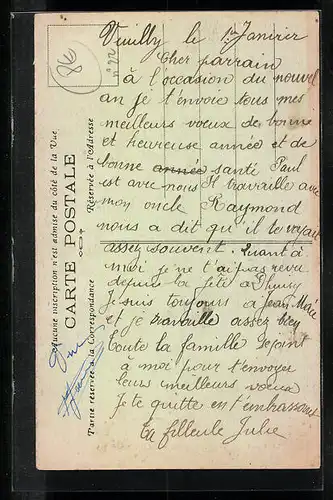 Vuilly le 1er Janvier
Cher parrain
à l'occasion du nouvel
an je t'envoie tous mes
meilleurs voeux de bonne
et heureuse année et de
bonne année santé Paul
est avec nous Il travaille avec
mon oncle Raymond
nous a dit qu'il le voyait
assez souvent. Quant à
moi je ne t'ai pas revu
depuis la fête à
Je suis toujours à
et je travaille assez bien
Toute la famille se joint
à moi pour t'envoyer
leurs meilleurs voeux
Je te quitte en t'embrassant
Ta filleule Julie
Aucune inscription n'est admise du côté de la Vue
CARTE POSTALE
Partie réservée à la Correspondance
Réservée à l'Adresse